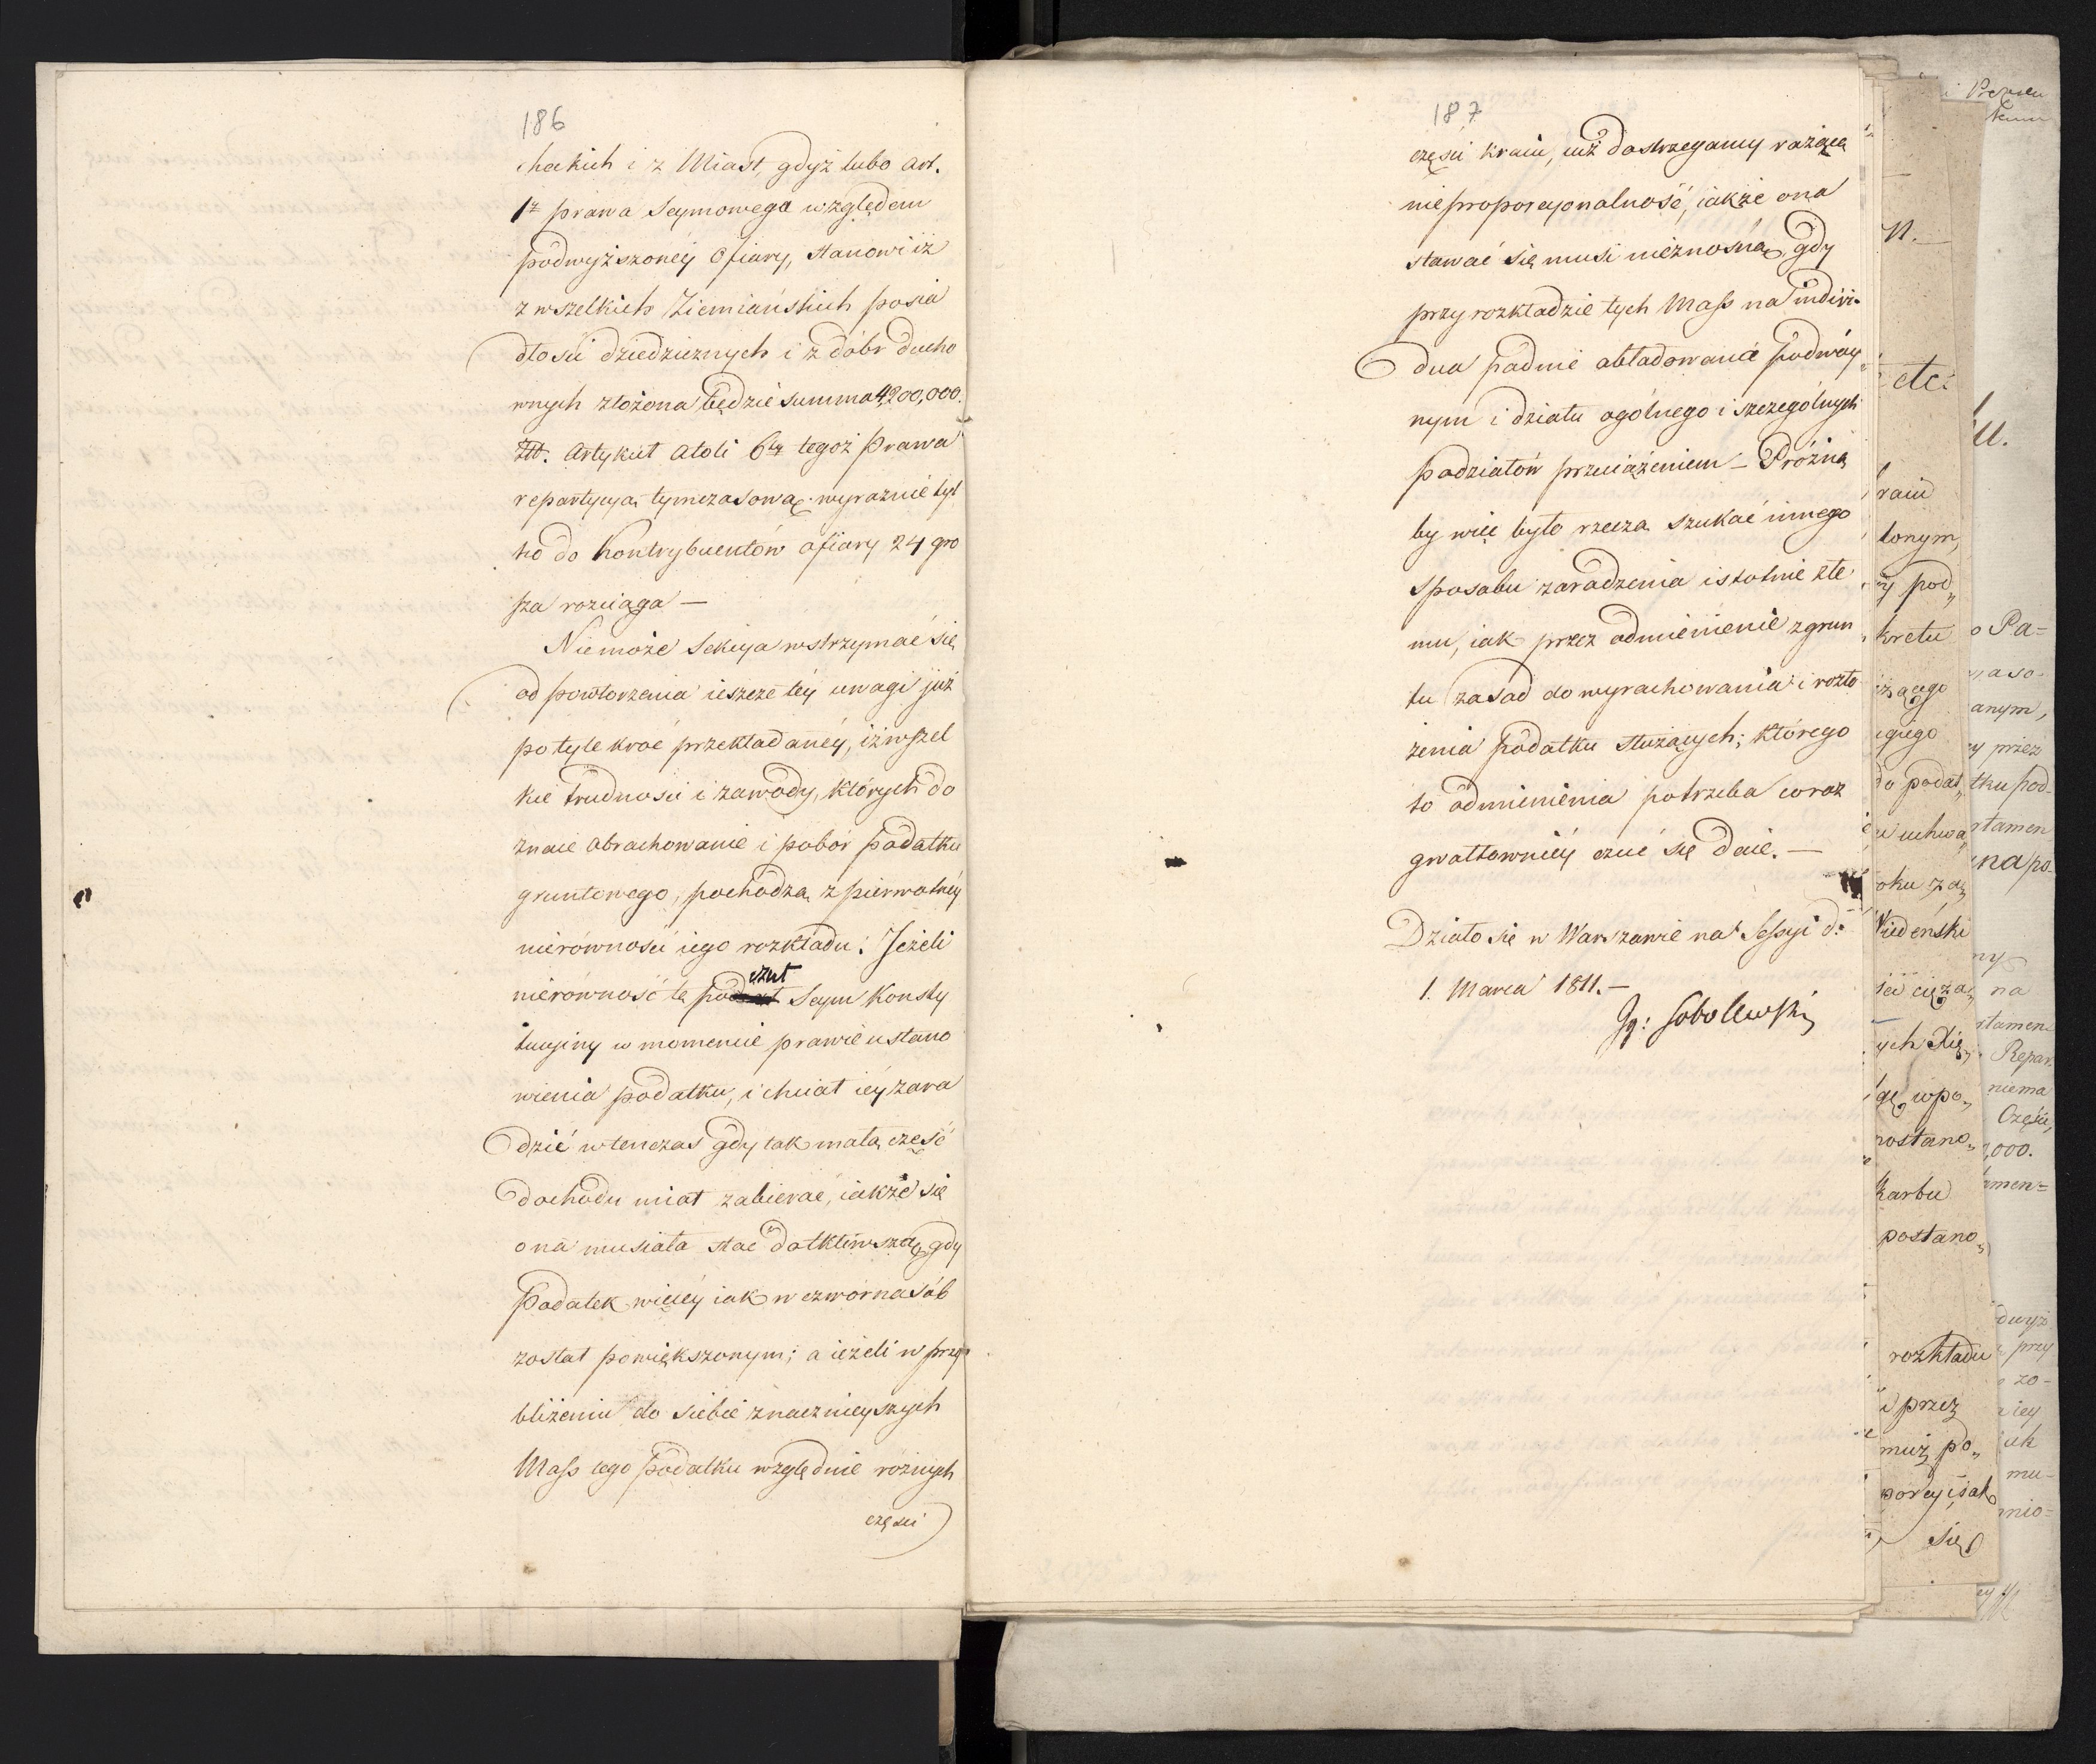 186
checkich i z Miast, gdyż lubo art.
1r prawa Seymowego względem
podwyższoney Ofiary, stanowi iż
z wszelkich Ziemiańskich posia
dłości dziedzicznych i z dóbr ducho
wnych złożona będzie summa 4,200,000.
Złł. Artykuł atoli 6ty tegoż Prawa
repartycyą tymczasową wyraźnie tyl
ko do Kontrybuentów ofiary 24 gro
sza rozciąga —
Niemoże Sekcya wstrzymać się
od powtorzenia ieszcze tey uwagi już
potyle kroć przekładaney, iż wszel
kie trudności i zawody, których do
znaie obrachowanie i pobór podatku
gruntowego, pochodzą z pierwotney
nierówności iego rozkładu: Jeżeli
nierówność tę czuł Seym Konsty
tucyiny w momencie prawie ustano
wienia podatku, i chciał iey zara
dzić wtenczas gdy tak małą część
dochodu miał zabierać, iakże się
ona musiała stać dotkliwszą, gdy
Podatek więcey iak w czwórnasób
został powiększonym; a ieżeli w przy
bliżeniu do siebie znacznieyszych
Mass tego podatku względnie różnych
części
187
części kraiu, już dostrzegamy rażącą
nieproporcyonalność, iakże ona
stawać się musi nieznośną, gdy
przy rozkładzie tych Mass na indivi-
dua padnie obładowanie podwóy
nym i działu ogólnego i szczególnych
podziałów przeciążeniem — Próżną
by więc było rzeczą szukać innego
sposobu zaradzenia istotnie złe
mu, iak przez odmienienie z grun
tu zasad do wyrachowania i rozło
żenia podatku służących; którego
to odmienienia potrzeba coraz
gwałtowniey czuć się daie. —
Działo się w Warszawie na Sessyi d:
1. Marca 1811. —
Jg: Sobolewski
n.
etc:
raiu
lonym,
y pod„
kretu
iżącego
do podat„
u uchwa„
oku za„
Wiedeński
ści cięża„
ych Xię„
postano„
karbu
postano„
rozkładu
i przez
muż po„
się
o Pa=
anym,
y przez
tku pod-
rtamen
na po-
na
Repar.
niema
Części,
,000.
amen=
przy
zo-
iey
mu-
mnio=